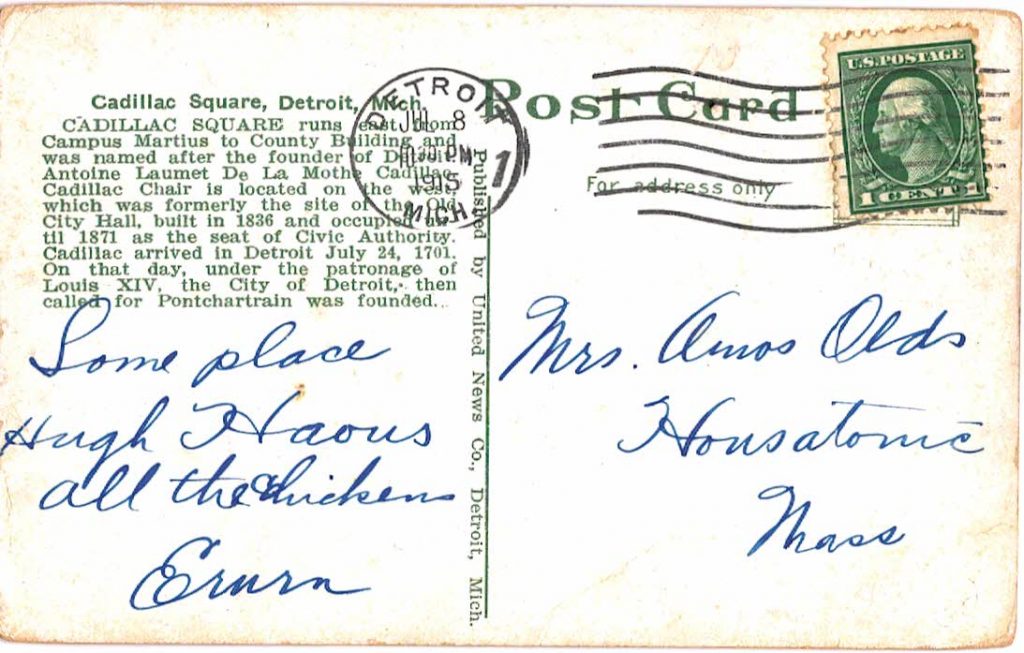 Cadillac Square, Detroit, Mich.
CADILLAC SQUARE runs east from
Campus Martius to County Building and
was named after the founder of Detroit
Antoine Laumet De La Mothe Cadillac.
Cadillac Chair is located on the west,
which was formerly the site of the Old
City Hall, built in 1836 and occupied un-
til 1871 as the seat of Civic Authority.
Cadillac arrived in Detroit July 24, 1701.
On that day, under the patronage of
Louis XIV, the City of Detroit, then
called for Pontchartrain was founded.
Some place
Hugh
all the chickens
Published by United News Co., Detroit, Mich.
DETROIT
JUL 8
PM
1915
MICH.
1
Post Card
For address only
U.S. POSTAGE
1 CENT 1
Mrs. Amos Olds
Housatonic
Mass